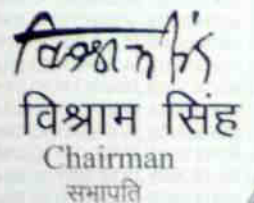 विश्राम सिंह
विश्राम सिंह
Chairman
सभापति